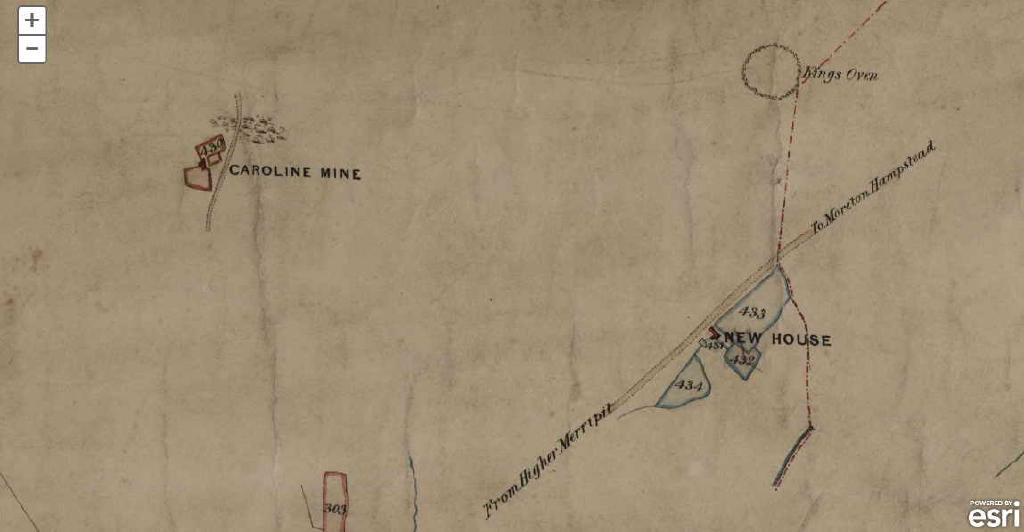 +
−
Kings Oven
430
CAROLINE MINE
To Moreton Hampstead
433
NEW HOUSE
431
432
434
From Higher Merripit
303
POWERED BY
esri